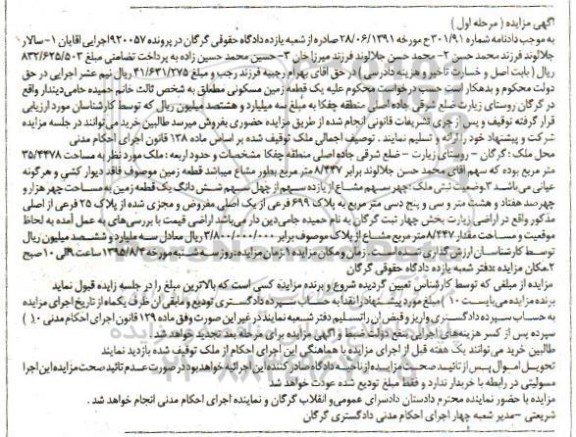 آگهی مزایده ( مرحله اول )
به موجب دادنامه شماره ۳۰۱/۹۱ ح مورخه ۲۸/۰۶/۱۳۹۱ صادره از شعبه یازده دادگاه حقوقی گرگان در پرونده ۹۲۰۰۵۷ اجرایی آقایان ۱- سالار
جلالوند فرزند محمد حسن ۲- محمد حسن جلالوند فرزند میرزا خان ۳- حسین محمد حسین زاده به پرداخت تضامنی مبلغ ۸۳۲/۶۲۵/۵۰۳
ریال ( بابت اصل و خسارت تأخیر و هزینه دادرسی ) در حق آقای بهرام رجبیه فرزند رجب و مبلغ ۴۱/۶۳۱/۲۷۵ ریال نیم عشر اجرایی در حق
دولت محکوم و بدهکار است حسب درخواست محکوم علیه یک قطعه زمین مسکونی متعلق به شخص ثالث خانم حمیده جامی دیندار واقع
در گرگان روستای زیارت ضلع شرقی جاده اصلی منطقه چفکا به مبلغ سه میلیارد و هشتصد میلیون ریال که توسط کارشناسان مورد ارزیابی
قرار گرفته توقیف و پس از جری تشریفات قانونی انجام شده از طریق مزایده حضوری بفروش میرسد طالبین خرید می توانند در جلسه مزایده
شرکت و پیشنهاد خود را ارائه و تسلیم نمایند . توصیف اجمالی ملک توقیف شده بر اساس ماده ۱۳۸ قانون اجرای احکام مدنی
محل ملک : گرگان - روستای زیارت - ضلع شرقی جاده اصلی منطقه چفکا مشخصات و حدود اربعه : ملک مورد نظر به مساحت ۳۵/۴۴۷۸
متر مربع بوده که سهم آقای محمد حسن جلالوند برابر ۸/۴۴۷ متر مربع بطور مشاع میباشد قطعه زمین موصوف فاقد دیوار کشی و هرگونه
عیانی می باشد ۳. وضعیت ثبتی ملک : چهر سهم مشاع از یازده سهم از چهل سهم شش دانگ یک قطعه زمین به مساحت چهر هزار و
چهرصد هفتاد و هشت متر و سی و پنج دسی متر مربع به پلاک ۶۹۹ فرعی از یک اصلی مفروض و مجزی شده از پلاک ۲۵ فرعی از اصلی
مذکور واقع در اراضی زیارت بخش چهار ثبت گرگان به نام حمیده جامی دین دار می باشد اراضی قیمت با بررسی های به عمل آمده به لحاظ
موقعیت و مساحت مقدار ۸/۴۴۷ متر مربع مشاع از پلاک موصوف برابر ۳/۸۰۰/۰۰۰/۰۰۰ ریال معادل سه میلیارد و ششصد میلیون ریال
توسط کارشناسان ارزش گذاری شده است . زمان و مکان مزایده ۱: زمان مزایده : روز سه شنبه مورخه ۱۳۹۵/۸/۴ ساعت ۹ الی ۱۰ صبح
۲. مکان مزایده دفتر شعبه یازده دادگاه حقوقی گرگان
مزایده از مبلغی که توسط کارشناس تعیین گردیده شروع و برنده مزایده کسی است که بالاترین مبلغ را در جلسه زایده قبول نماید
برنده مزایده می بایست ۱۰ ) مبلغ مورد پیشنهاد را نقدا به حساب سپرده دادگستری تودیع و مابقی آن ظرف یکماه از تاریخ اجرای مزایده
به حساب سپرده دادگستری واریز و فیض آن را تسلیم دفتر شعبه نمایند در غیر این صورت وفق ماده ۱۲۹ قانون اجرای احکام مدنی ۱۰ )
سپرده پس از کسر هزینه های اجرایی بنفع دولت ضبط و آگهی مزایده برای مرحله بعد تجدید خواهد شد
طالبین خرید می توانند یک هفته قبل از اجرای مزایده با هماهنگی این اجرای احکام از ملک توقیف شده بازدید نمایند
تحویل اموال پس از تائید صحت مزایده از ناحیه دادگاه صادر کننده این اجرائیه خواهد بود در صورت عدم تائید صحت مزایده این اجرا
مسولیتی در رابطه با خریدار ندارد و فقط مبلغ تودیع شده عودت خواهد شد
مزایده با حضور نماینده محترم دادستان دادسرای عمومی و انقلاب گرگان و نماینده اجرای احکام مدنی انجام خواهد شد .
شریعتی - مدیر شعبه چهار اجرای احکام مدنی دادگستری گرگان